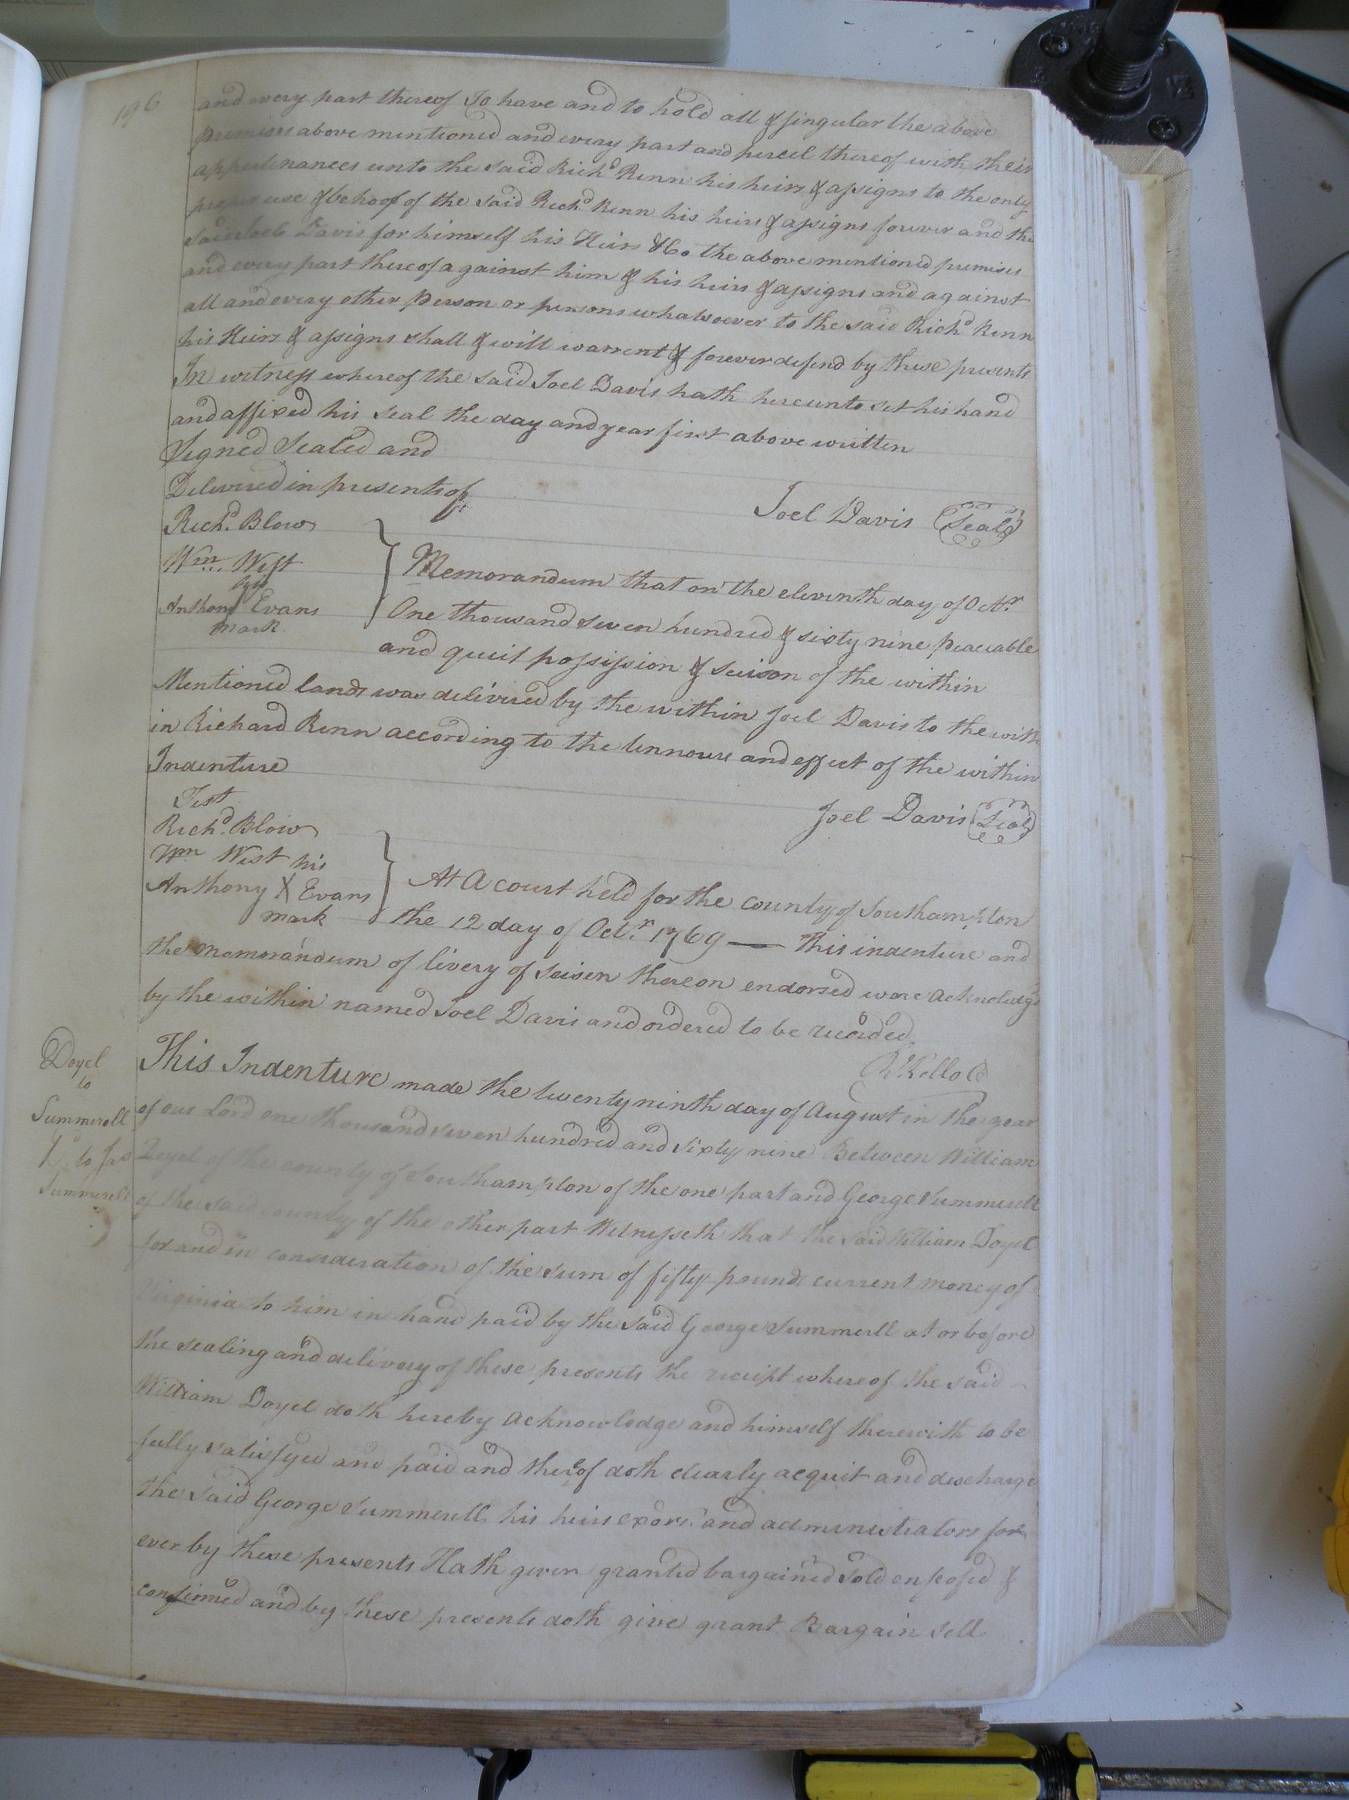 196
and every part thereof To have and to hold all & singular the above
premises above mentioned and every part and percel thereof with their
appurtenances unto the said Richd Renn his heirs & assigns to the only
proper use & behoof of the said Richd Renn his heirs & assigns forever and the
said Joel Davis for himself his Heirs &Co the above mentioned premises
and every part thereof against him & his heirs & assigns and against
all and every other Person or persons whatsoever to the said Richd Renn
his Heirs & assigns shall & will warrent & forever defend by these presents
In witness whereof the said Joel Davis hath hereunto set his hand
and affixed his seal the day and year first above written
Signed Sealed and
Delivered in presents of
Joel Davis (Seal)
Richd. Blow
Wm West
his
Anthony Evans
mark
Memorandum that on the eleventh day of Octr
One thousand seven hundred & sixty nine Peaceable
and queit possission & seison of the within
Mentioned lands was delivered by the within Joel Davis to the with
in Richard Renn according to the tennour and effect of the within
Indenture
Joel Davis (Seal)
Test
Richd. Blow
Wm West his
Anthony X Evans
mark
At A court held for the county of Southampton
the 12 day of Octr. 1769 — This indenture and
the momorandum of livery of seisen thereon endorsed were Acknoledgd
by the within named Joel Davis and ordered to be recorded.
R Kello C
Doyel
to
Summerell
to Jas
Summerell
This Indenture made the twenty ninth day of August in the year
of our Lord one thousand seven hundred and sixty nine Between William
Doyel of the county of Southampton of the one part and George Summerell
of the said county of the other part Witnesseth that the said William Doyel
for and in consideration of the sum of fifty pounds current money of
Virginia to him in hand paid by the said George Summerell at or before
the sealing and delivery of these presents the receipt whereof the said
William Doyel doth hereby Acknowledge and himself therewith to be
fully satisfyed and paid and thereof doth clearly acquit and discharge
the said George Summerell his heirs exors. and administrators for
ever by these presents Hath given granted bargained sold enfeofed &
confirmed and by these presents doth give grant Bargain sell